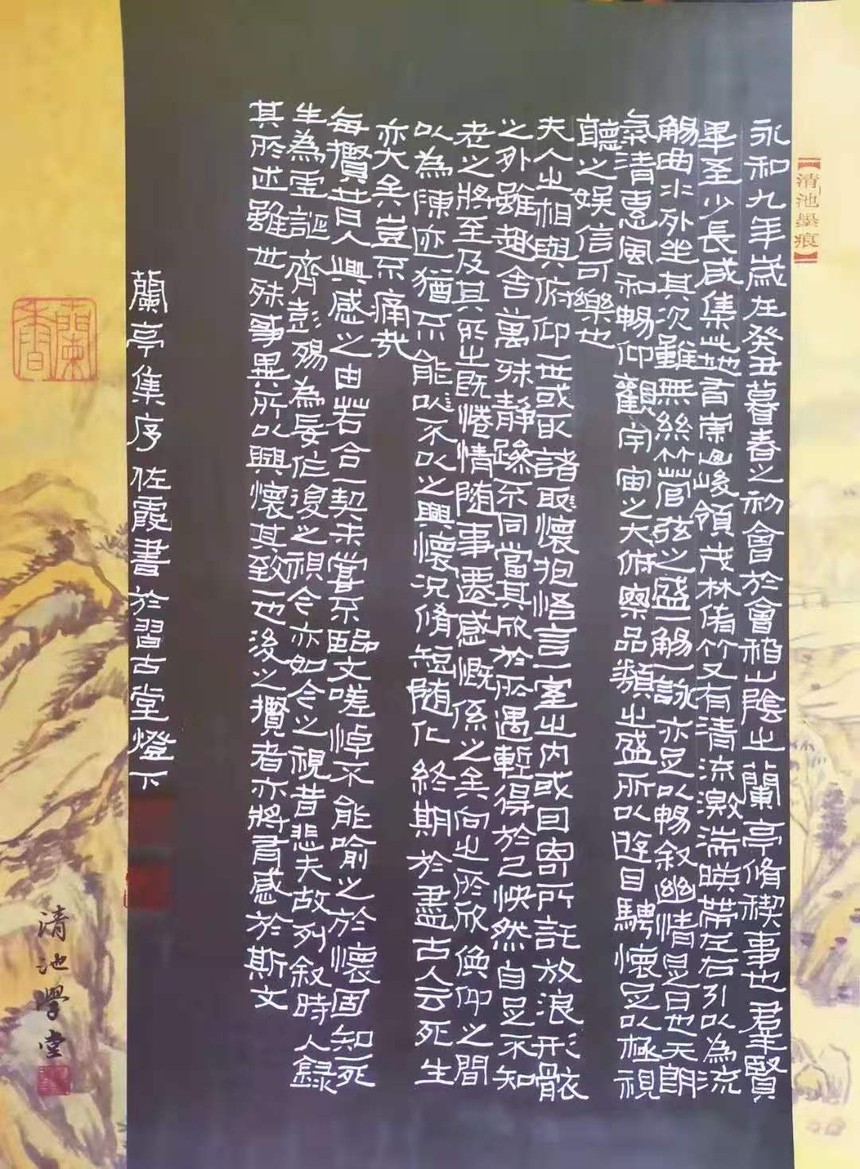 【清池墨痕】
永和九年歲在癸丑暮春之初會於會稽山陰之蘭亭脩禊事也羣賢
畢至少長咸集此地有崇山峻領茂林脩竹又有清流激湍暎帶左右引以為流
觴曲水列坐其次雖無絲竹管弦之盛一觴一詠亦足以暢叙幽情是日也天朗
氣清惠風和暢仰觀宇宙之大俯察品類之盛所以遊目騁懷足以極視
聽之娛信可樂也
夫人之相與俯仰一世或取諸懷抱悟言一室之內或因寄所託放浪形骸
之外雖趣舍萬殊靜躁不同當其欣於所遇暫得於己怏然自足不知
老之將至及其所之既惓情隨事遷感慨係之矣向之所欣俛仰之間
以為陳迹猶不能以不以之興懷况脩短隨化終期於盡古人云死生
亦大矣豈不痛哉
每攬昔人興感之由若合一契未嘗不臨文嗟悼不能喻之於懷固知一死
生為虛誕齊彭殤為妄作後之視今亦如今之視昔悲夫故列叙時人錄
其所述雖世殊事異所以興懷其致一也後之攬者亦將有感於斯文
蘭亭集序佐霞書於習古堂燈下
蘭香
清池學堂